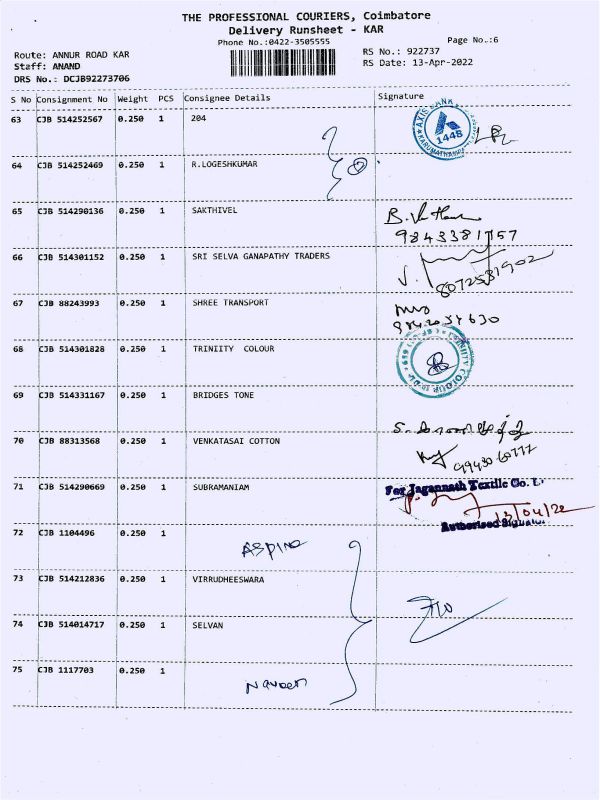 THE PROFESSIONAL COURIERS, Coimbatore
Delivery Runsheet - KAR
Phone No.:0422-3505555
Page No.:6
Route: ANNUR ROAD KAR
RS No.: 922737
Staff: ANAND
RS Date: 13-Apr-2022
DRS No.: DCJB92273706
S No Consignment No Weight PCS Consignee Details Signature
63 CJB 514252567 0.250 1 204
AXIS BANK
1448
64 CJB 514252469 0.250 1 R.LOGESHKUMAR
65 CJB 514290136 0.250 1 SAKTHIVEL
9843381157
66 CJB 514301152 0.250 1 SRI SELVA GANAPATHY TRADERS
8072581902
67 CJB 88243993 0.250 1 SHREE TRANSPORT
68 CJB 514301828 0.250 1 TRINIITY COLOUR
69 CJB 514331167 0.250 1 BRIDGES TONE
70 CJB 88313568 0.250 1 VENKATASAI COTTON
71 CJB 514290669 0.250 1 SUBRAMANIAM
For Jagannath Textile Co. L
13/04/22
Authorised
72 CJB 1104496 0.250 1
73 CJB 514212836 0.250 1 VIRRUDHEESWARA
74 CJB 514014717 0.250 1 SELVAN
75 CJB 1117703 0.250 1 Naveen